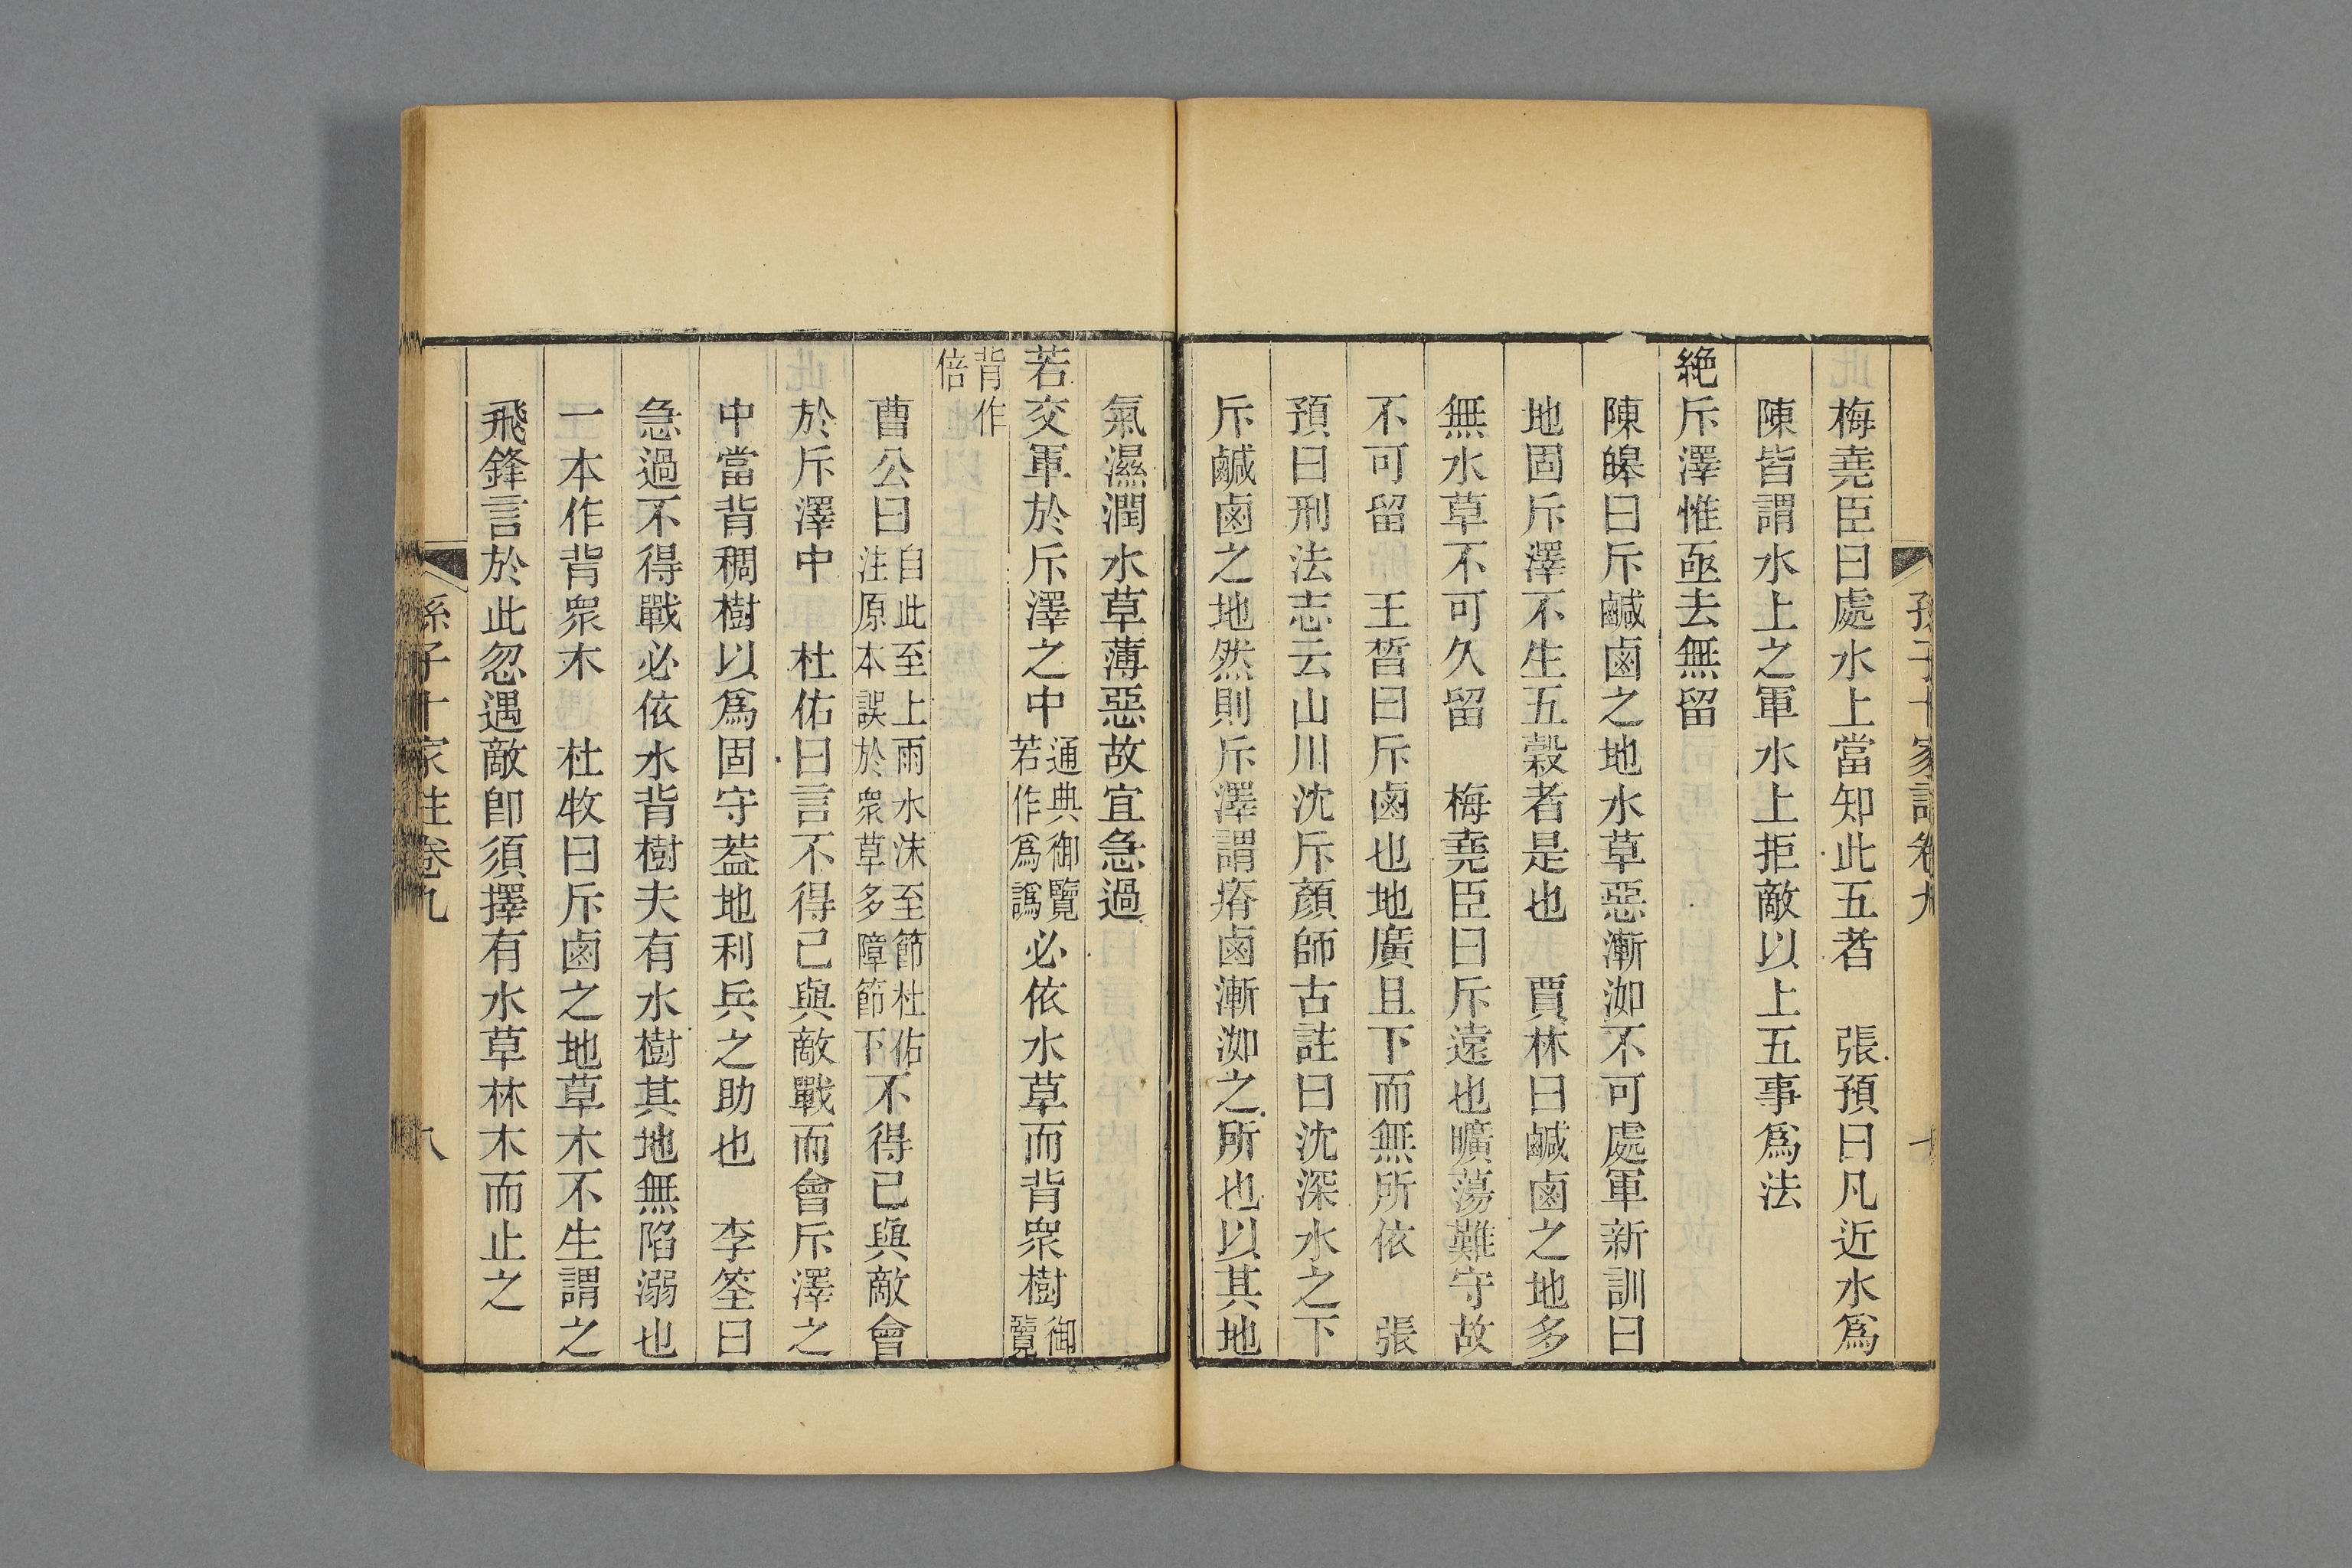 梅堯臣曰處水上當知此五者　張預曰凡近水爲
陳皆謂水上之軍水上拒敵以上五事爲法
絶斥澤惟亟去無留
陳皥曰斥鹹鹵之地水草惡漸洳不可處軍新訓曰
地固斥澤不生五穀者是也　賈林曰鹹鹵之地多
無水草不可久留　梅堯臣曰斥遠也曠蕩難守故
不可留　王晳曰斥鹵也地廣且下而無所依　張
預曰刑法志云山川沈斥顏師古註曰沈深水之下
斥鹹鹵之地然則斥澤謂瘠鹵漸洳之所也以其地
氣濕潤水草薄惡故宜急過
若交軍於斥澤之中通典御覽若作爲譌必依水草而背衆樹御覽
背作倍
曹公曰自此至上雨水沫至節杜佑注原本誤於衆草多障節下不得已與敵會
於斥澤中　杜佑曰言不得已與敵戰而會斥澤之
中當背稠樹以爲固守葢地利兵之助也　李筌曰
急過不得戰必依水背樹夫有水樹其地無陷溺也
一本作背衆木　杜牧曰斥鹵之地草木不生謂之
飛鋒言於此忽遇敵卽須擇有水草林木而止之
孫子十家註卷九　八